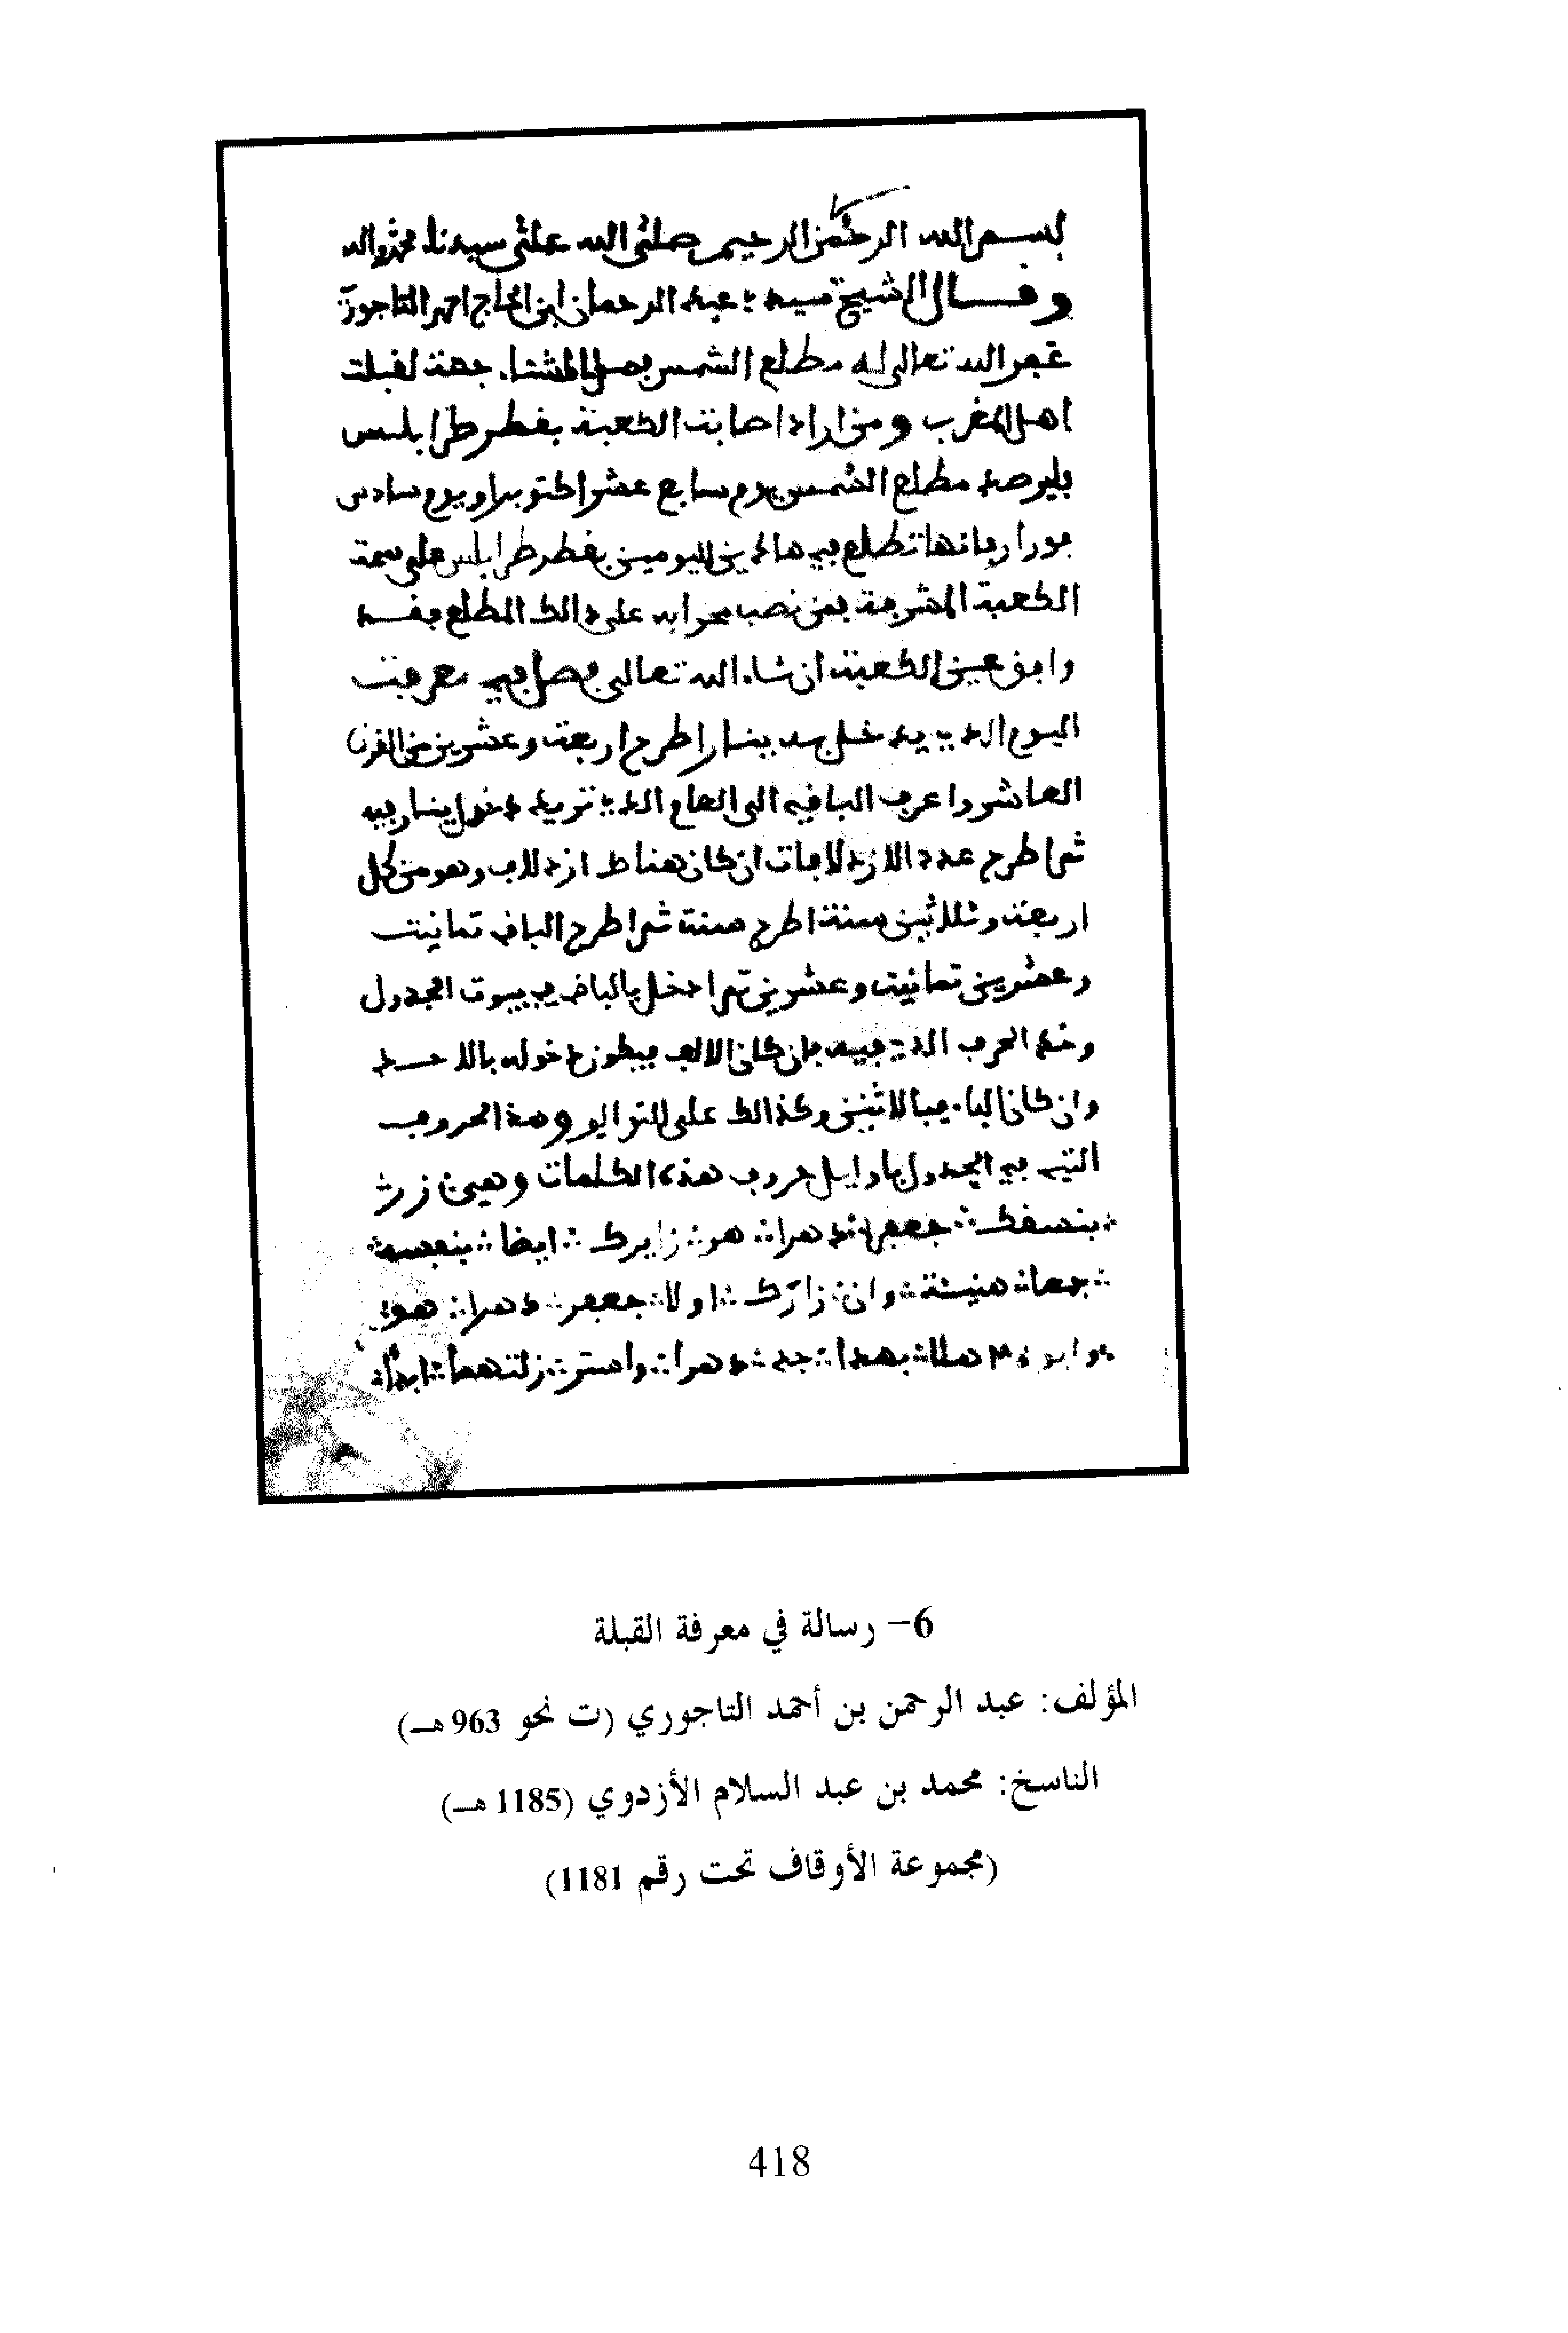 بسم الله الرحمن الرحيم صلى الله على سيدنا محمد وءاله
وقال الشيخ سيدي عبد الرحمان ابن الحاج احمد التاجوري
غفر الله تعالى له مطلع الشمس فصل الشتاء جهة لقبلت
اهل المغرب ومن اراد اصابت الكعبة بقطر طرابلس
فليرصد مطلع الشمس يوم سابع عشر اكتوبر او يوم سادس
فورار فانها تطلع في هاذين اليومين بقطر طرابلس على سمة
الكعبة المشرفة فمن نصب محرابه على ذالك المطلع فقد
وافق عين الكعبة ان شاء الله تعالى فصل في معرفت
اليوم الذي يدخل به ينار اطرح اربعة وعشرين من القرن
العاشر واعرف الباقي الى العام الذي تريد دخول ينار فيه
ثم اطرح عدد الازدلافات ان كان هناك ازدلاف وهو من كل
اربعة وثلاثين سنة اطرح سنة ثم اطرح الباقي ثمانيت
وعشرين ثمانيت وعشرين ثم ادخل بالباقي في بيوت الجدول
وخذ الحرف الذي فيه فان كان الالف فيكون دخوله بالاحد
وان كان الباء فبالاثنين وكذالك على التوالي وهذا الحروف
التي في الجدول باوايل حروف هذه الكلمات وهي ن زرت
بنسفك جعفرا دهرا هو زايرك ايضا بنفسه
جمعا هنيئة وان زارك اولا جعفر دهرا هو
هملا بهدا جد دهرا واستر زلتهما ابدا
6- رسالة في معرفة القبلة
المؤلف: عبد الرحمن بن أحمد التاجوري (ت نحو 963 هـ)
الناسخ: محمد بن عبد السلام الأزدوي (1185 هـ)
(مجموعة الأوقاف تحت رقم 1181)
418